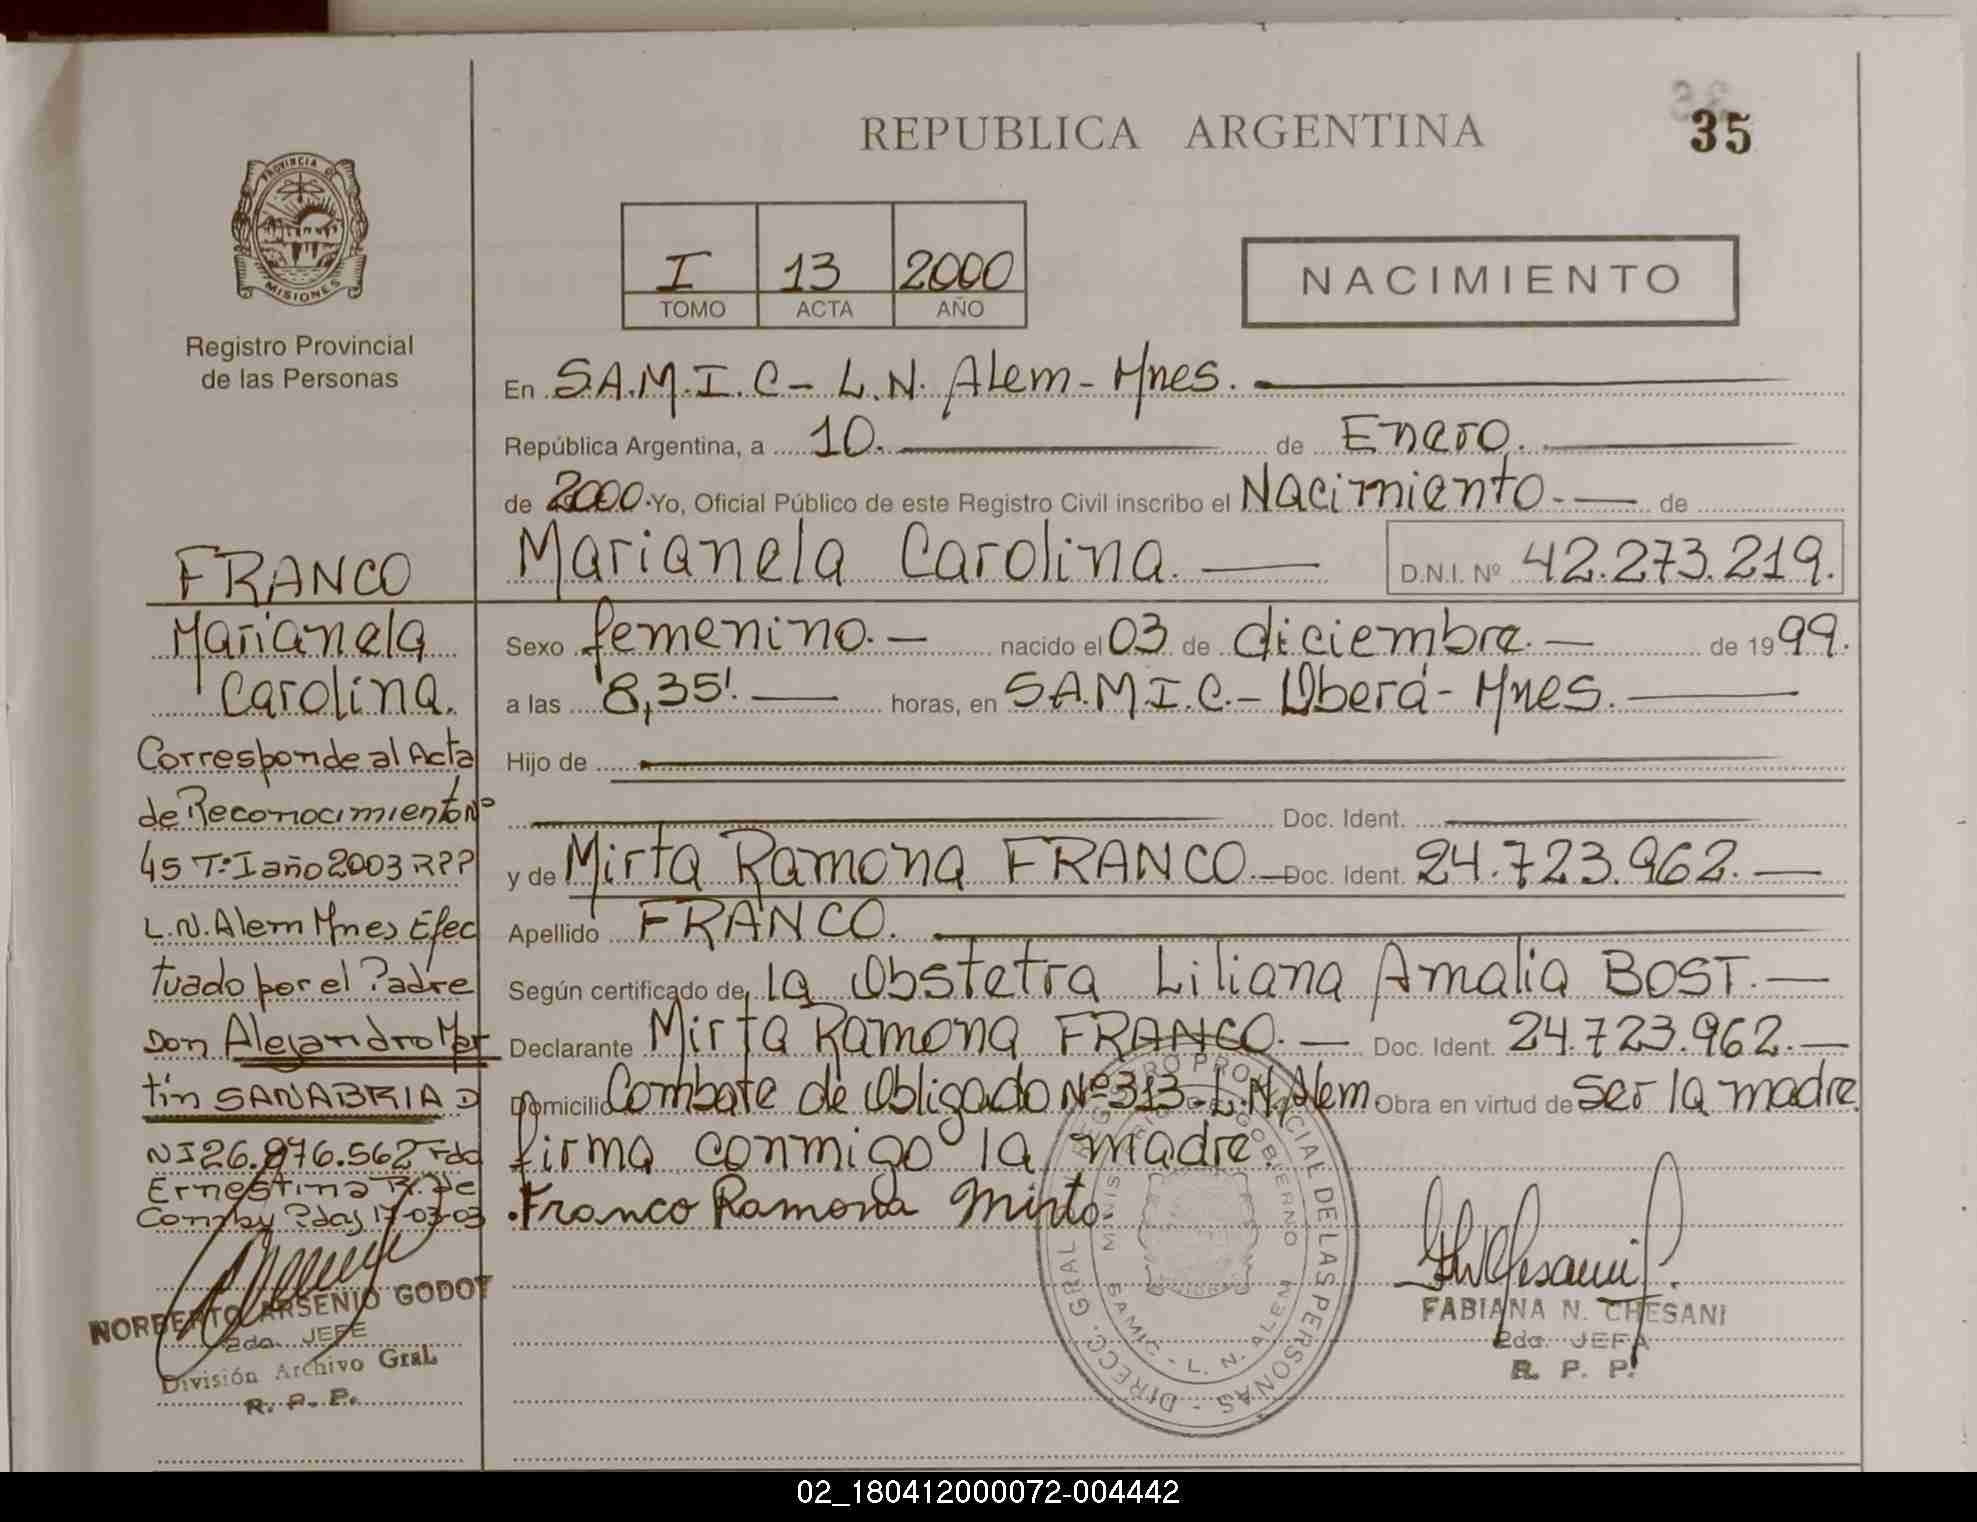 REPUBLICA ARGENTINA
35
PROVINCIA DE
MISIONES
Registro Provincial
de las Personas
I 13 2000
TOMO ACTA AÑO
NACIMIENTO
En S.A.M.I.C- L.N. Alem- Mnes.
República Argentina, a 10. de Enero.
de 2000. Yo, Oficial Público de este Registro Civil inscribo el Nacimiento.- de
Marianela Carolina. D.N.I. Nº 42.273.219.
Sexo femenino.- nacido el 03 de diciembre.- de 1999.
a las 8,35'. horas, en S.A.M.I.C.- Oberá- Mnes.
Hijo de
Doc. Ident.
y de Mirta Ramona FRANCO.- Doc. Ident. 24.723.962.-
Apellido FRANCO.
Según certificado de la Obstetra Liliana Amalia BOST.-
Declarante Mirta Ramona FRANCO.- Doc. Ident. 24.723.962.-
Domicilio Combate de Obligado Nº 313- L.N. Alem Obra en virtud de ser la madre
firma conmigo la madre.
.Franco Ramona Mirta.
FABIANA N. CHESANI
2da. JEFA
R. P. P.
DIRECC. GRAL REGISTRO PROVINCIAL DE LAS PERSONAS -
MINISTERIO DE GOBIERNO
SAMIC - L. N. ALEM
FRANCO
Marianela
Carolina.
Corresponde al Acta
de Reconocimiento Nº
45 T:I año 2003 RPP
L.N. Alem Mnes Efec
tuado por el Padre
Don Alejandro Mar
tín SANABRIA D
NI 26.876.562 Fdo
Ernestina R. de
Pdas 17-03-03
NORBERTO ARSENIO GODOY
2do. JEFE
División Archivo Gral.
R. P. P.
02_180412000072-004442